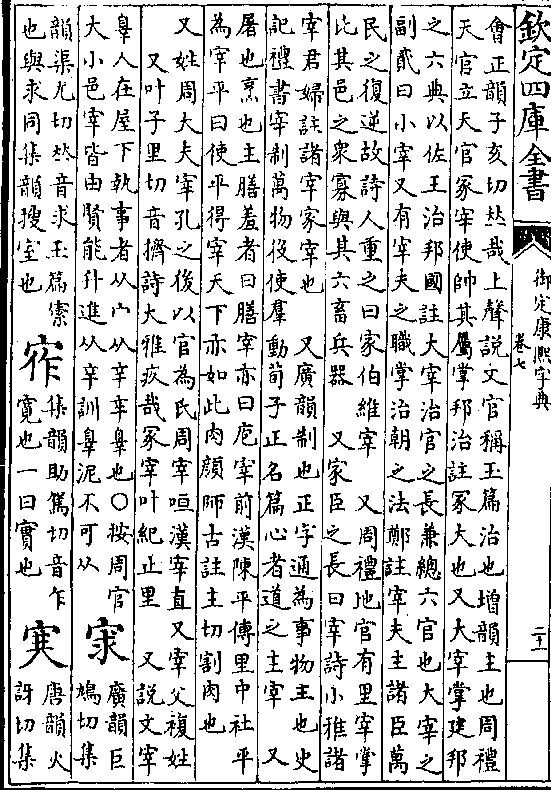 欽定四庫全書
御定康熙字典
卷七
二十一
會正韻子亥切𠀤哉上聲説文官稱玉篇治也增韻主也周禮
天官立天官冢宰使帥其屬掌邦治註冢大也又大宰掌建邦
之六典以佐王治邦國註大宰治官之長兼總六官也大宰之
副貳曰小宰又有宰夫之職掌治朝之法鄭註宰夫主諸臣萬
民之復逆故詩人重之曰家伯維宰　又周禮地官有里宰掌
比其邑之衆寡與其六畜兵器　又家臣之長曰宰詩小雅諸
宰君婦註諸宰家宰也　又廣韻制也正字通為事物主也史
記禮書宰制萬物役使羣動荀子正名篇心者道之主宰　又
屠也烹也主膳羞者曰膳宰亦曰庖宰前漢陳平傳里中社平
為宰平曰使平得宰天下亦如此肉顔師古註主切割肉也
又姓周大夫宰孔之後以官為氏周宰咺漢宰直又宰父複姓
又叶子里切音擠詩大雅疚哉冢宰叶紀止里　又説文宰
辠人在屋下執事者从宀从辛辛辠也○按周官
大小邑宰皆由賢能升進从辛訓辠泥不可从
宩
廣韻巨
鳩切集
韻渠尤切𠀤音求玉篇索
也與求同集韻搜室也
㝍
集韻助駕切音乍
寛也一曰實也
㝠
唐韻火
訝切集